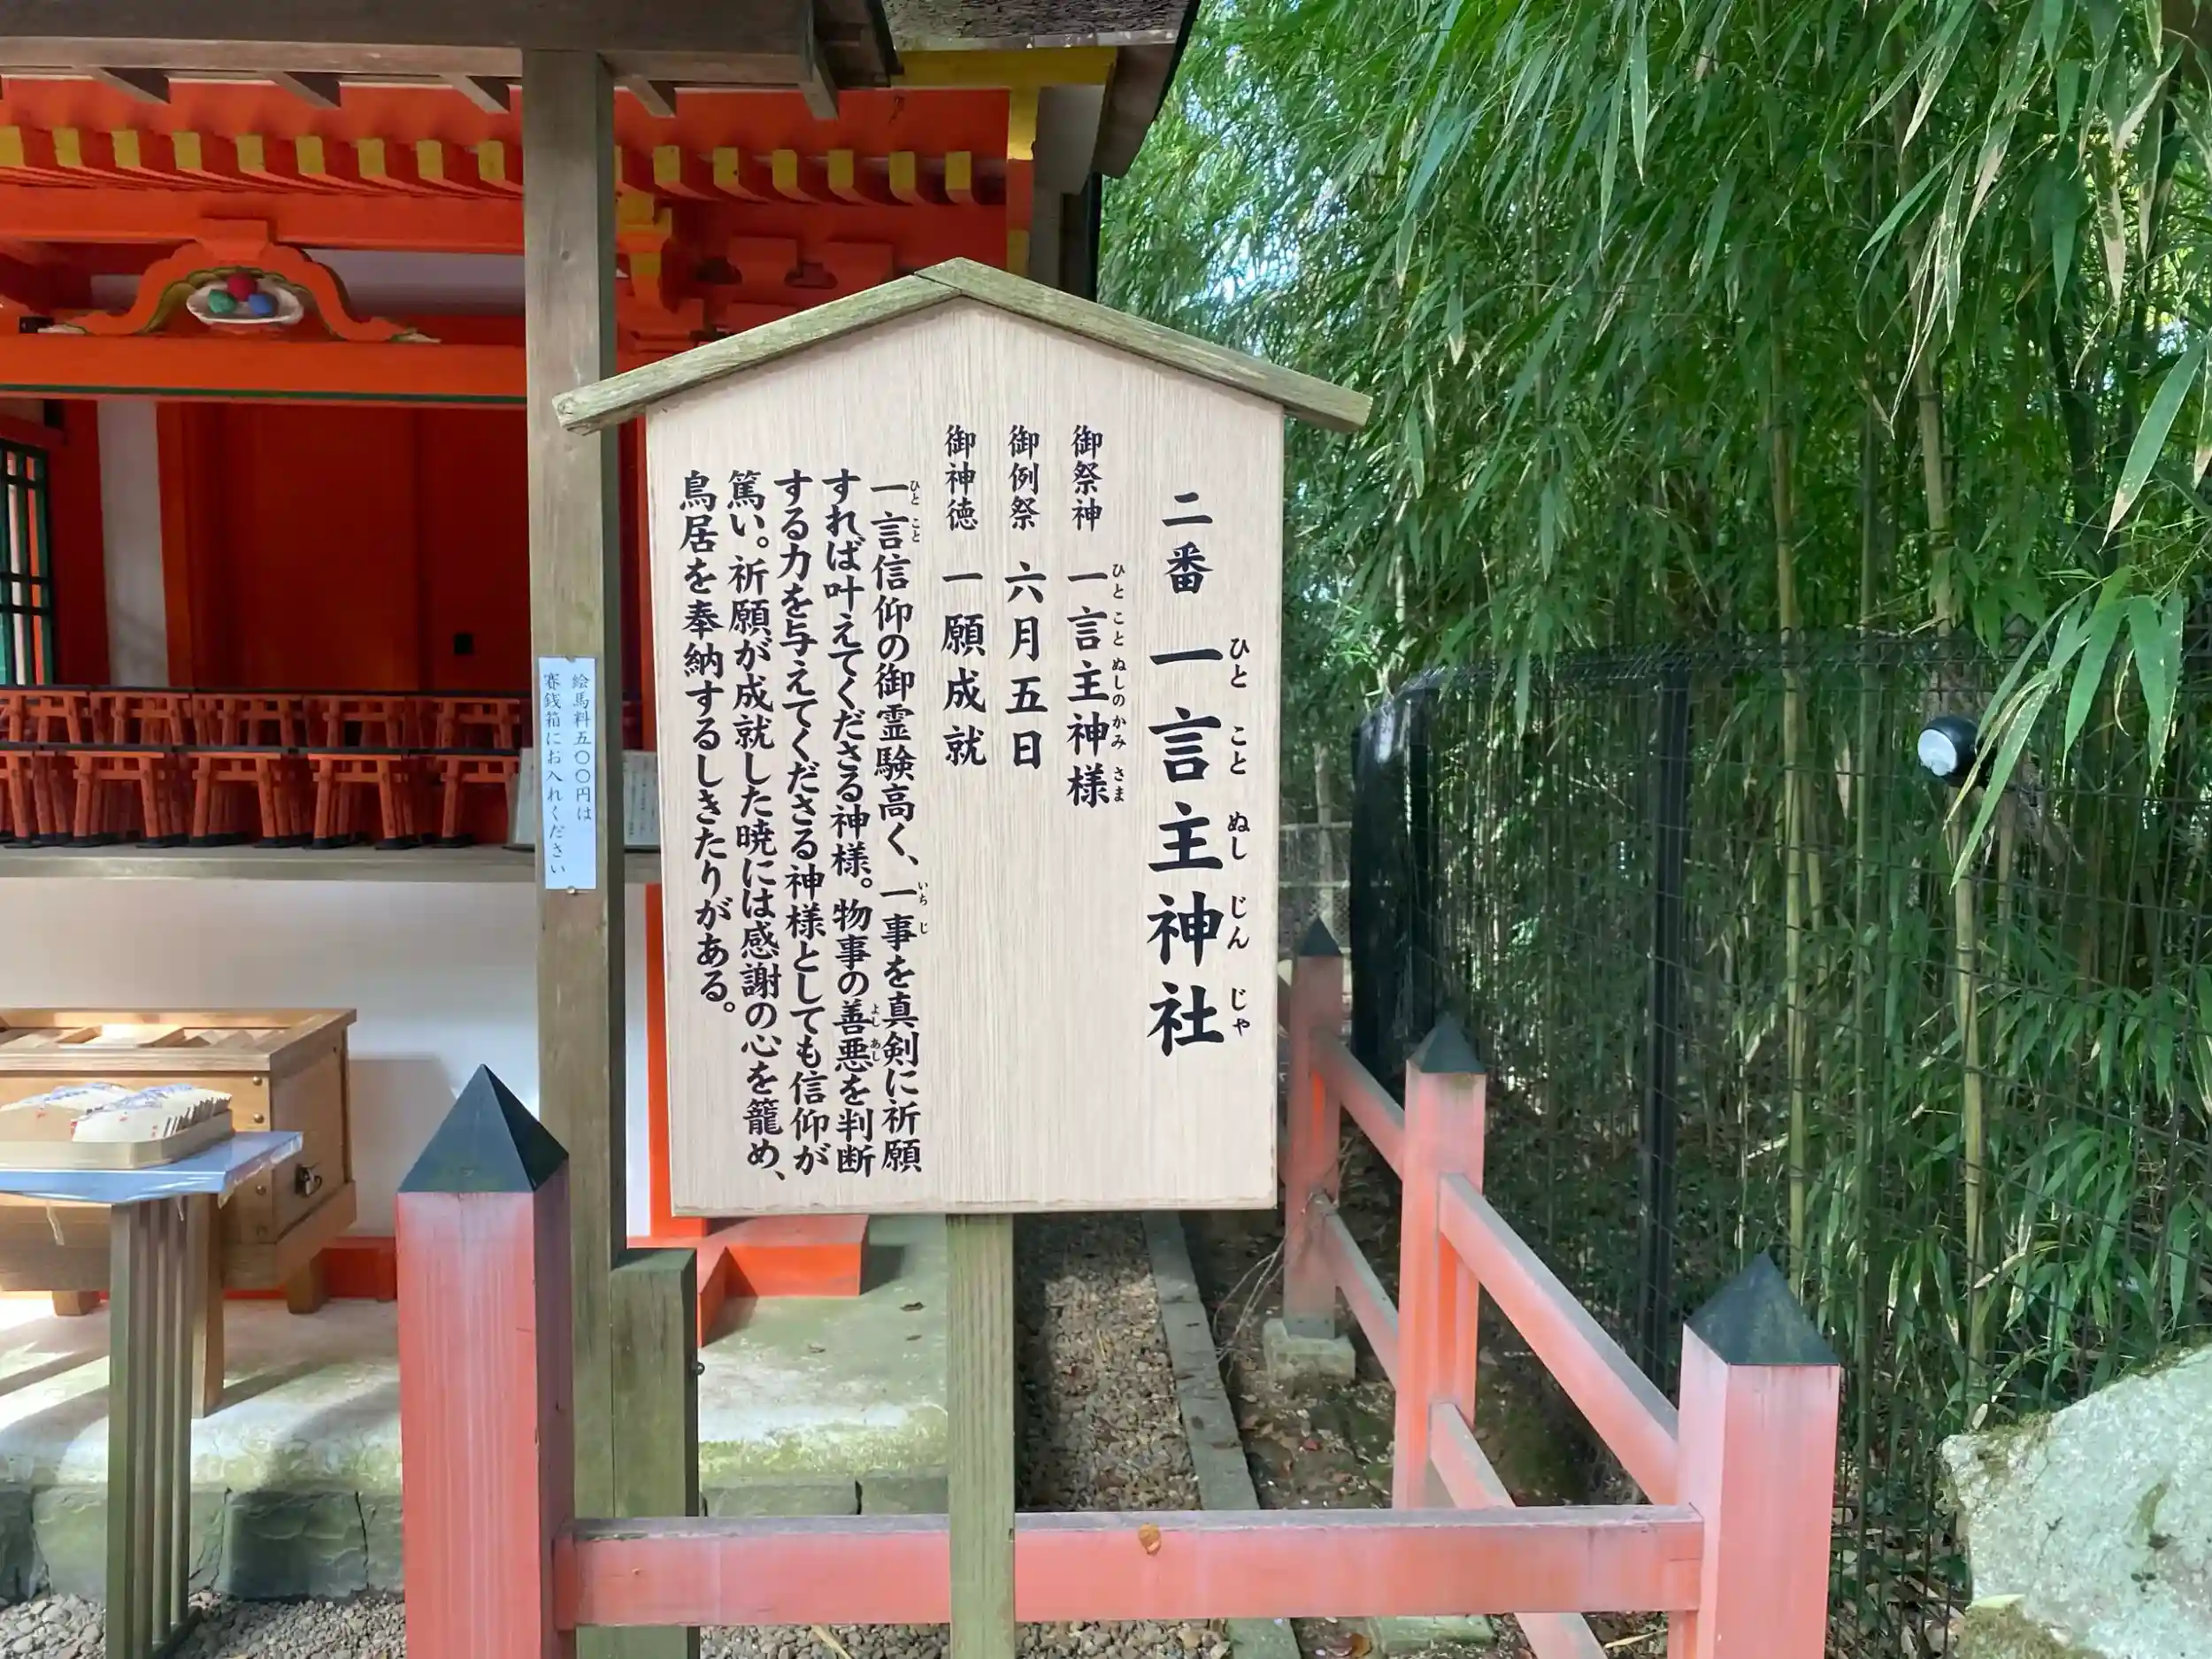 二番 一言主神社
ひとことぬしじんじゃ
御祭神 一言主神様
ひとことぬしのかみさま
御例祭 六月五日
御神徳 一願成就
一言信仰の御霊験高く、一事を真剣に祈願
ひとこと いちじ
すれば叶えてくださる神様。物事の善悪を判断
よしあし
する力を与えてくださる神様としても信仰が
篤い。祈願が成就した暁には感謝の心を籠め、
鳥居を奉納するしきたりがある。
絵馬料五〇〇円は
賽銭箱にお入れください